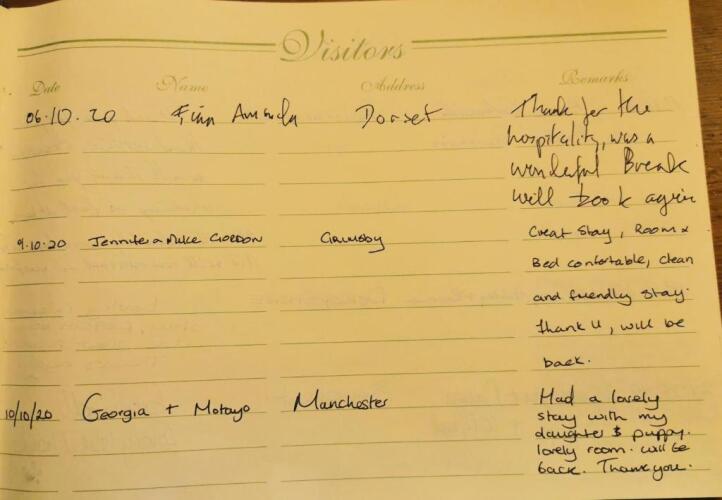 Visitors
Date Name Address Remarks
06.10.20 Finn Dorset Thank for the
hospitality, was a
wonderful Break
will book again
9.10.20 Jennifer & Mike GORDON Grimsby Great Stay, Room &
Bed confortable, clean
and friendly stay.
thank U, will be
back.
10/10/20 Georgia + Motayo Manchester Had a lovely
stay with my
daughter & puppy.
lovely room. will be
back. Thank you.